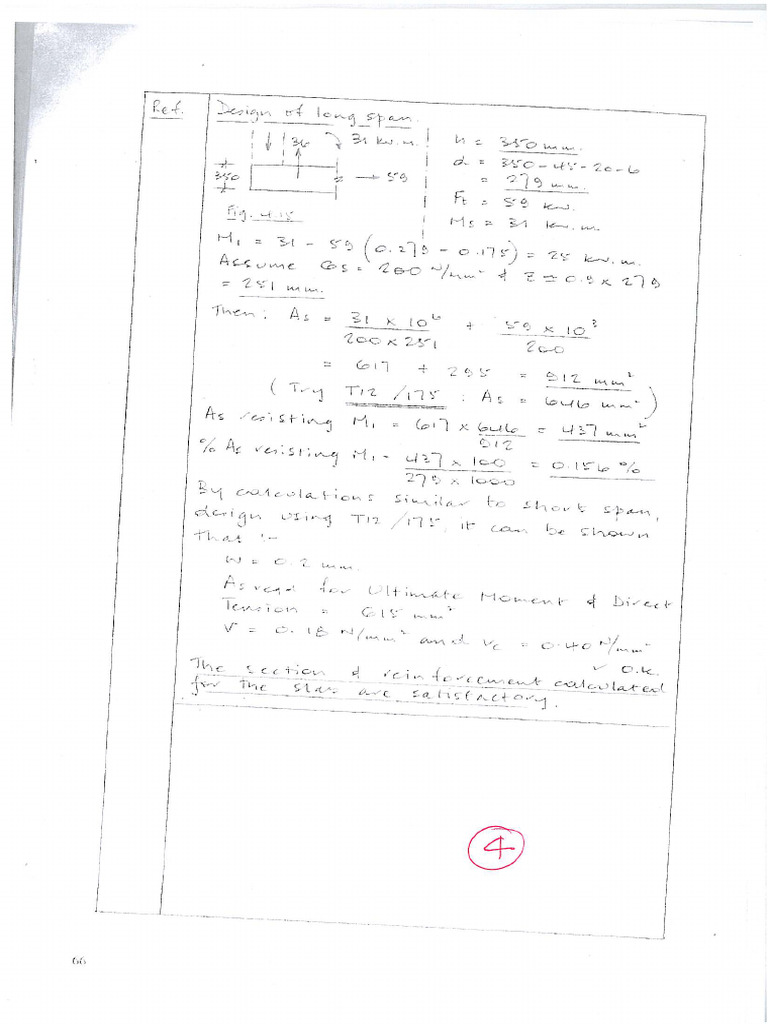 Ref. Design of long span.
36 31 kN.m. h = 350 mm.
d = 350-45-20-6
350 59 = 279 mm.
Ft = 59 kN.
Fig. 4.15 Ms = 31 kN.m.
M1 = 31 - 59 (0.279 - 0.175) = 25 kN.m.
Assume σs = 200 N/mm² & Z ≃ 0.9 x 279
= 251 mm.
Then: As = 31 x 10⁶ / 200 x 251 + 59 x 10³ / 200
= 617 + 295 = 912 mm²
(Try T12/175 : As = 646 mm²)
As resisting M1 = 617 x 646 / 912 = 437 mm²
% As resisting M1 - 437 x 100 / 279 x 1000 = 0.156 %
By calculations similar to short span,
design using T12/175, it can be shown
that :-
W = 0.2 mm.
As reqd for Ultimate Moment & Direct
Tension = 615 mm²
V = 0.18 N/mm² and vc = 0.40 N/mm²
✓ O.K.
The section & reinforcement calculated
for the slab are satisfactory.
4
66